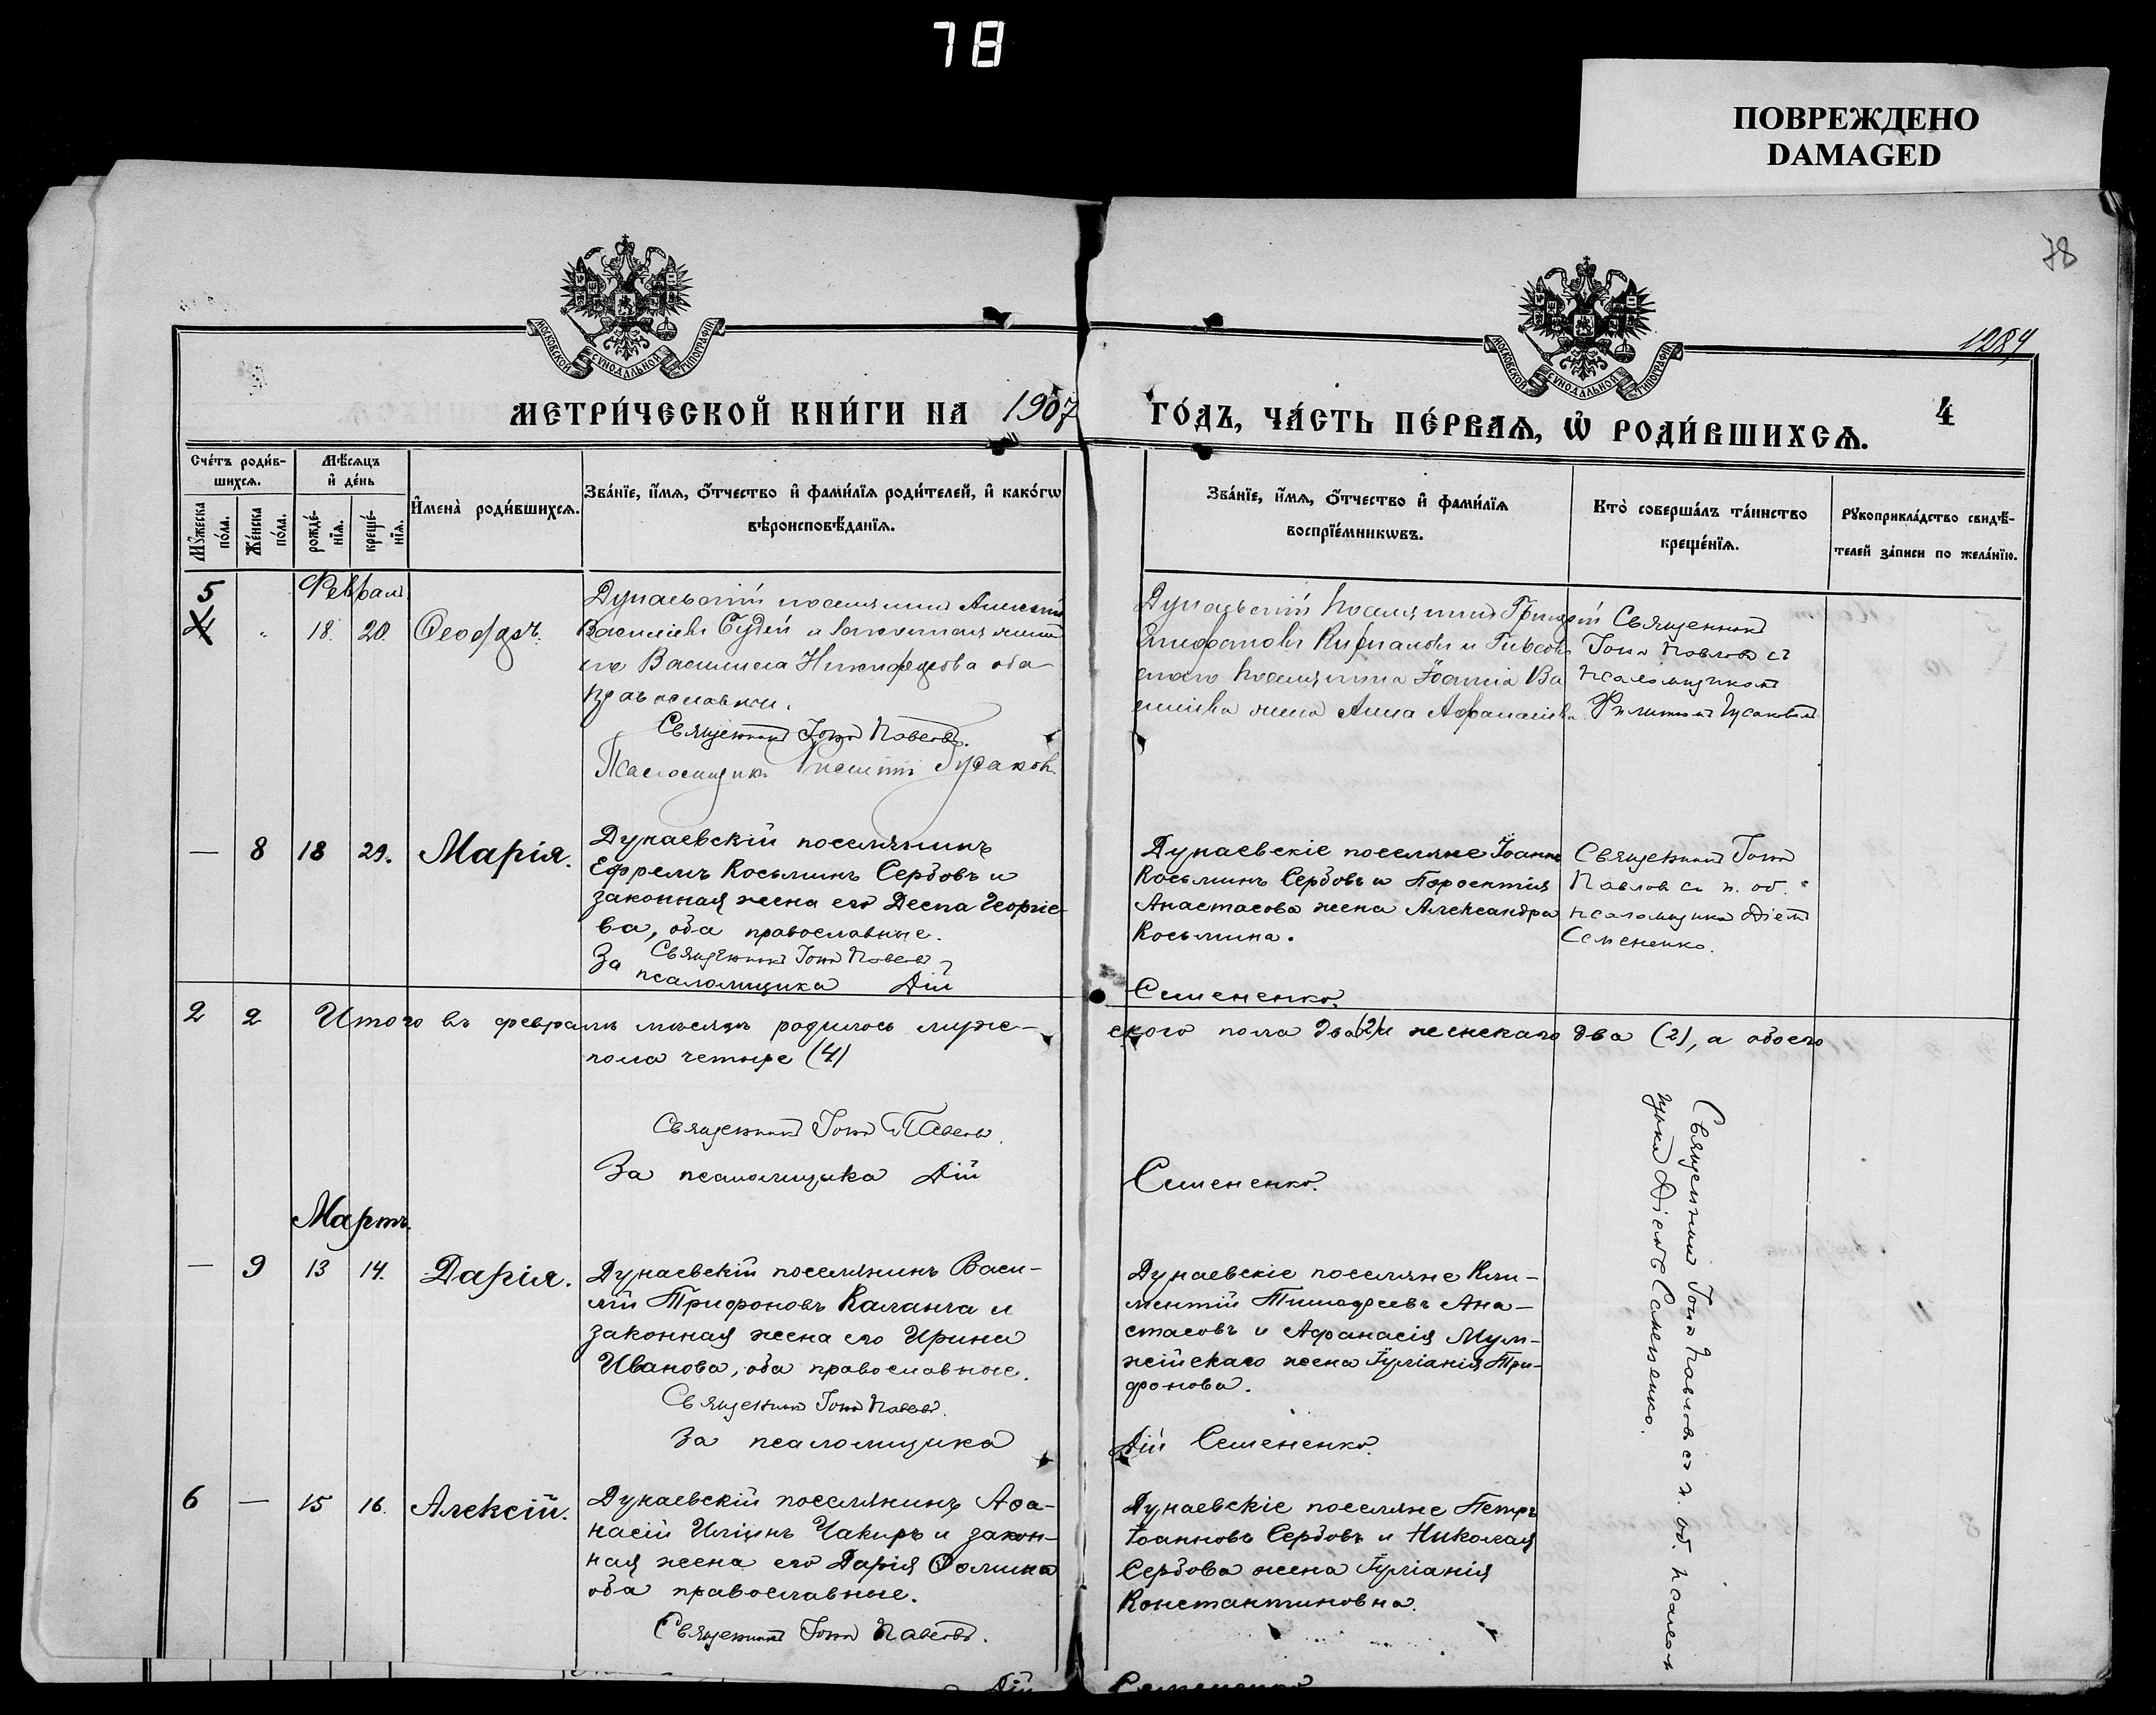 78
ПОВРЕЖДЕНО
DAMAGED
78
МОСКОВСКОЙ СУНОДАЛЬНОЙ ТИПОГРАФІИ
МОСКОВСКОЙ СУНОДАЛЬНОЙ ТИПОГРАФІИ
1284
МЕТРИ́ЧЕСКОЙ КНИ́ГИ НА 1907
ГО́ДЪ, ЧА́СТЬ ПЕ́РВАЯ, Ѡ҆ РОДИ́ВШИХСЯ.
4
Сче́тъ роди́в-
шихся.
Мѣ́сяцъ
и҆ де́нь
Мꙋжеска
по́ла.
Же́нска
по́ла.
рожде́-
нїя.
креще́-
нїя.
И҆мена̀ роди́вшихся.
Зва́нїе, и҆́мя, ѻ҆́тчество и҆ фами́лїя роди́телей, и҆ како́гѡ
вѣроисповѣ́данїя.
Зва́нїе, и҆́мя, ѻ҆́тчество и҆ фами́лїя
воспрїе́мникѡвъ.
Кто̀ соверша́лъ та́инство
креще́нїя.
Рꙋкоприкла́дство свидѣ́-
телей за́писи по жела́нїю.
Феврал
5
4 " 18. 20. Ѳеодоръ.
Дунаевскій поселянинъ Алексій
Василіевъ Будей и законная жена
его Василиса Никифорова оба
православны.
Священникъ Іона Павловъ.
Псаломщикъ Филиппъ Гусаковъ
Дунаевскій поселянинъ Григорій
поселянина Іоанна Ва
силіева жена Анна Афанасіева.
Священникъ
Іона Павловъ съ
псаломщикомъ
Филиппомъ Гусаковымъ
— 8 18 29. Марія.
Дунаевскій поселянинъ
Ефремъ Косьминъ Сербовъ и
законная жена его Деспа Георгіе-
ва, оба православные.
Священникъ Іона Павловъ
За псаломщика Дій
Дунаевскіе поселяне Іоаннъ
Косьминъ Сербовъ и Терентія
Анастасова жена Александра
Косьмина.
Семененко.
Священникъ Іона
Павловъ съ и. об.
псаломщика Діемъ
Семененко.
2 2 Итого въ февралѣ мѣсяцѣ родилось муже-
ского пола два (2) и женскаго два (2), а обоего
пола четыре (4)
Священникъ Іона Павловъ.
За псаломщика Дій
Семененко.
Мартъ.
— 9 13 14. Дарія.
Дунаевскій поселянинъ Васи-
лій Трифоновъ Каланча и
законная жена его Ирина
Иванова, оба православные.
Священникъ Іона Павловъ.
За псаломщика
Дунаевскіе поселяне Кли-
ментій Тимофеевъ Ана-
стасовъ и Афанасія Мум-
жійскаго жена Іуліанія Три-
фонова.
Дій Семененко.
Священникъ Іона Павловъ съ и. об. псалом
щика Діемъ Семененко.
6 — 15 16. Алексій.
Дунаевскій поселянинъ Афа-
насій Иліинъ Чакиръ и закон-
ная жена его Дарія Ѳомина
оба православные.
Священникъ Іона Павловъ.
Дій
Дунаевскіе поселяне Петръ
Іоанновъ Сербовъ и Николая
Сербова жена Іуліанія
Константиновна.
Семененко